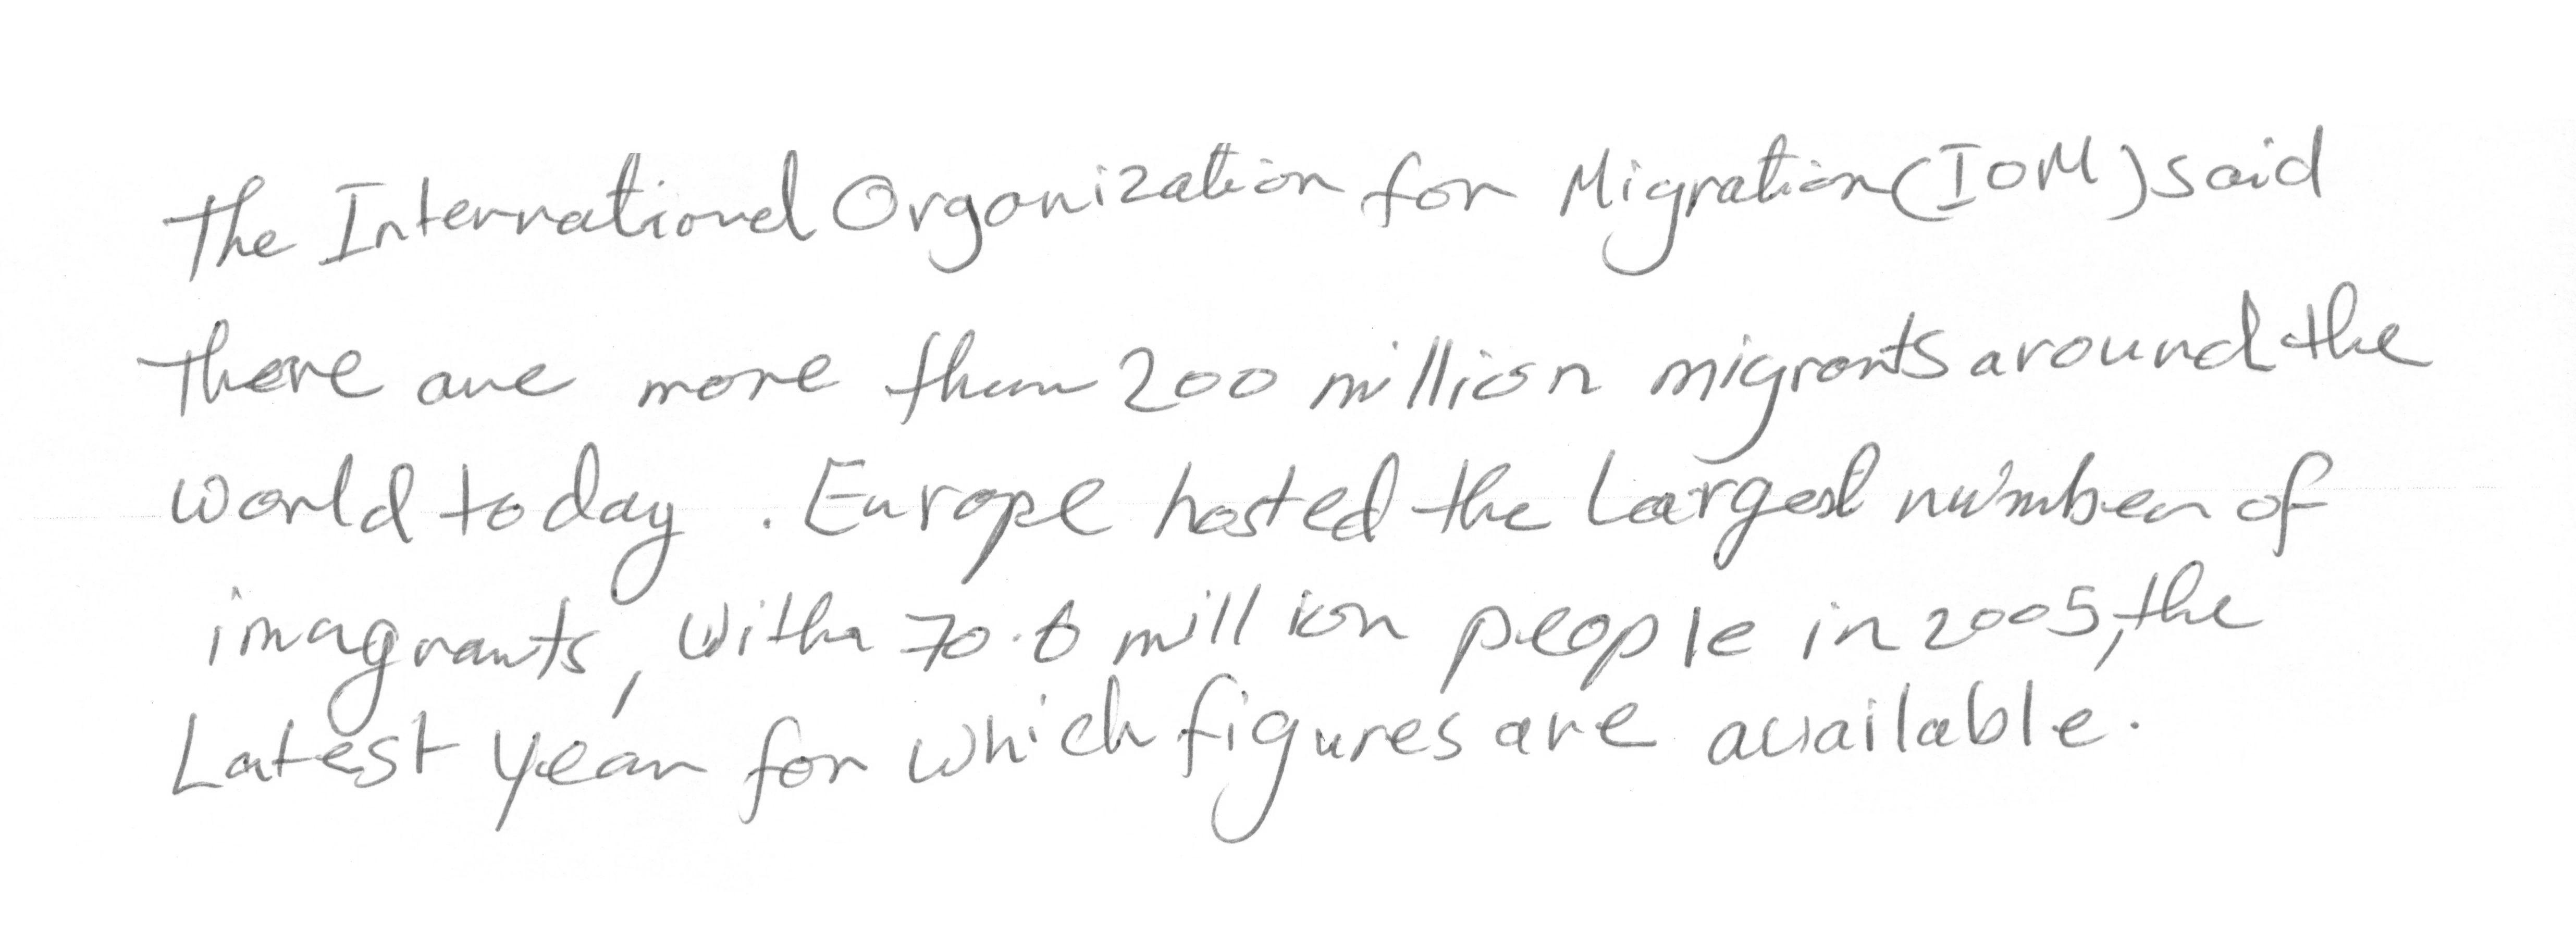 The International Organization for Migration (IOM) said
there are more than 200 million migrants around the
world today . Europe hosted the Largest number of
imagrants, with 70.6 million people in 2005, the
Latest year for which figures are available.